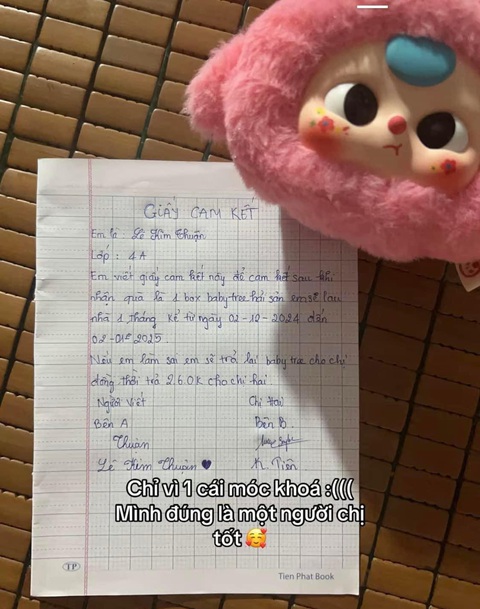 GIẤY CAM KẾT
Em là : Lê Kim Thuận
Lớp : 4A
Em viết giấy cam kết này để cam kết sau khi
nhận quà là 1 box babytree hải sản em sẽ lau
nhà 1 tháng kể từ ngày 02-12-2024 đến
02-01-2025.
Nếu em làm sai em sẽ trả lại babytree cho chị
đồng thời trả 260K cho chị hai.
Người viết Chị Hai
Bên A Bên B.
Thuận
Lê Kim Thuận K Tiên
Chỉ vì 1 cái móc khoá :(((
Mình đúng là một người chị
tốt 🥰
TP
Tien Phat Book